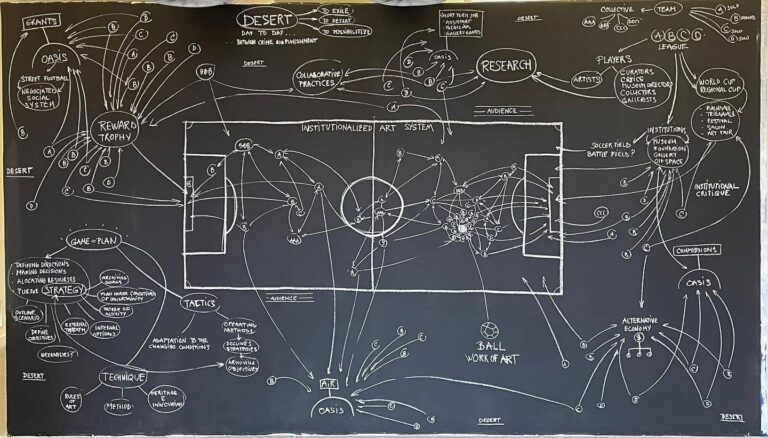 GRANTS
OASIS
STREET FOOTBALL
NEGOCIATED
SOCIAL
SYSTEM
REWARD
TROPHY
DESERT
DESERT
DAY TO DAY...
BETWEEN CRIME AND PUNISHMENT
TO EXILE
TO DESERT
TO POSSIBILITIES
DESERT
BBB
COLLABORATIVE
PRACTICES
SHORT TERM JOB
ASSISTANT
TECHNICIAN
OASIS
DESERT
RESEARCH
AUDIENCE
COLLECTIVE
AAA
BBB
CCC
TEAM
A SOLO
B
C SOLO
D SOLO
A B C D
LEAGUE
PLAYERS
ARTISTS
CURATORS
CRITICS
MUSEUM DIRECTORS
COLLECTORS
GALLERISTS
WORLD CUP
REGIONAL CUP
BIENNALE
TRIENNALE
FESTIVAL
SALON
ART FAIR
INSTITUTIONALIZED ART SYSTEM
SOCCER FIELD
BATTLE FIELD?
INSTITUTIONS
MUSEUM
FOUNDATION
GALLERY
OFF SPACE
INSTITUTIONAL
CRITIQUE
BBB
AAA
CCC
GAME-PLAN
DEFINING DIRECTIONS
MAKING DECISIONS
ALLOCATING RESOURCES
PURSUE STRATEGY
ARCHIEVING
GOALS
PLAN UNDER CONDITIONS
OF UNCERTAINTY
PATTERN OF
ACTIVITY
OUTLINE
SCENARIO
DEFINE
OBJECTIVES
EXTERNAL
THREATS
INTERNAL
OPTIONS
WEEKNESSES?
DESERT
TACTICS
OPERATING
METHODS
ADAPTATION TO THE
CHANGING CONDITIONS
STRATEGIES
OBJECTIVES
TECHNIQUE
RULES OF
ART
METHODS
HERITAGE
& INNOVATION
AUDIENCE
AIR
OASIS
BALL
WORK OF ART
DESERT
COMMISSIONS
OASIS
ALTERNATIVE
ECONOMY
DESERT